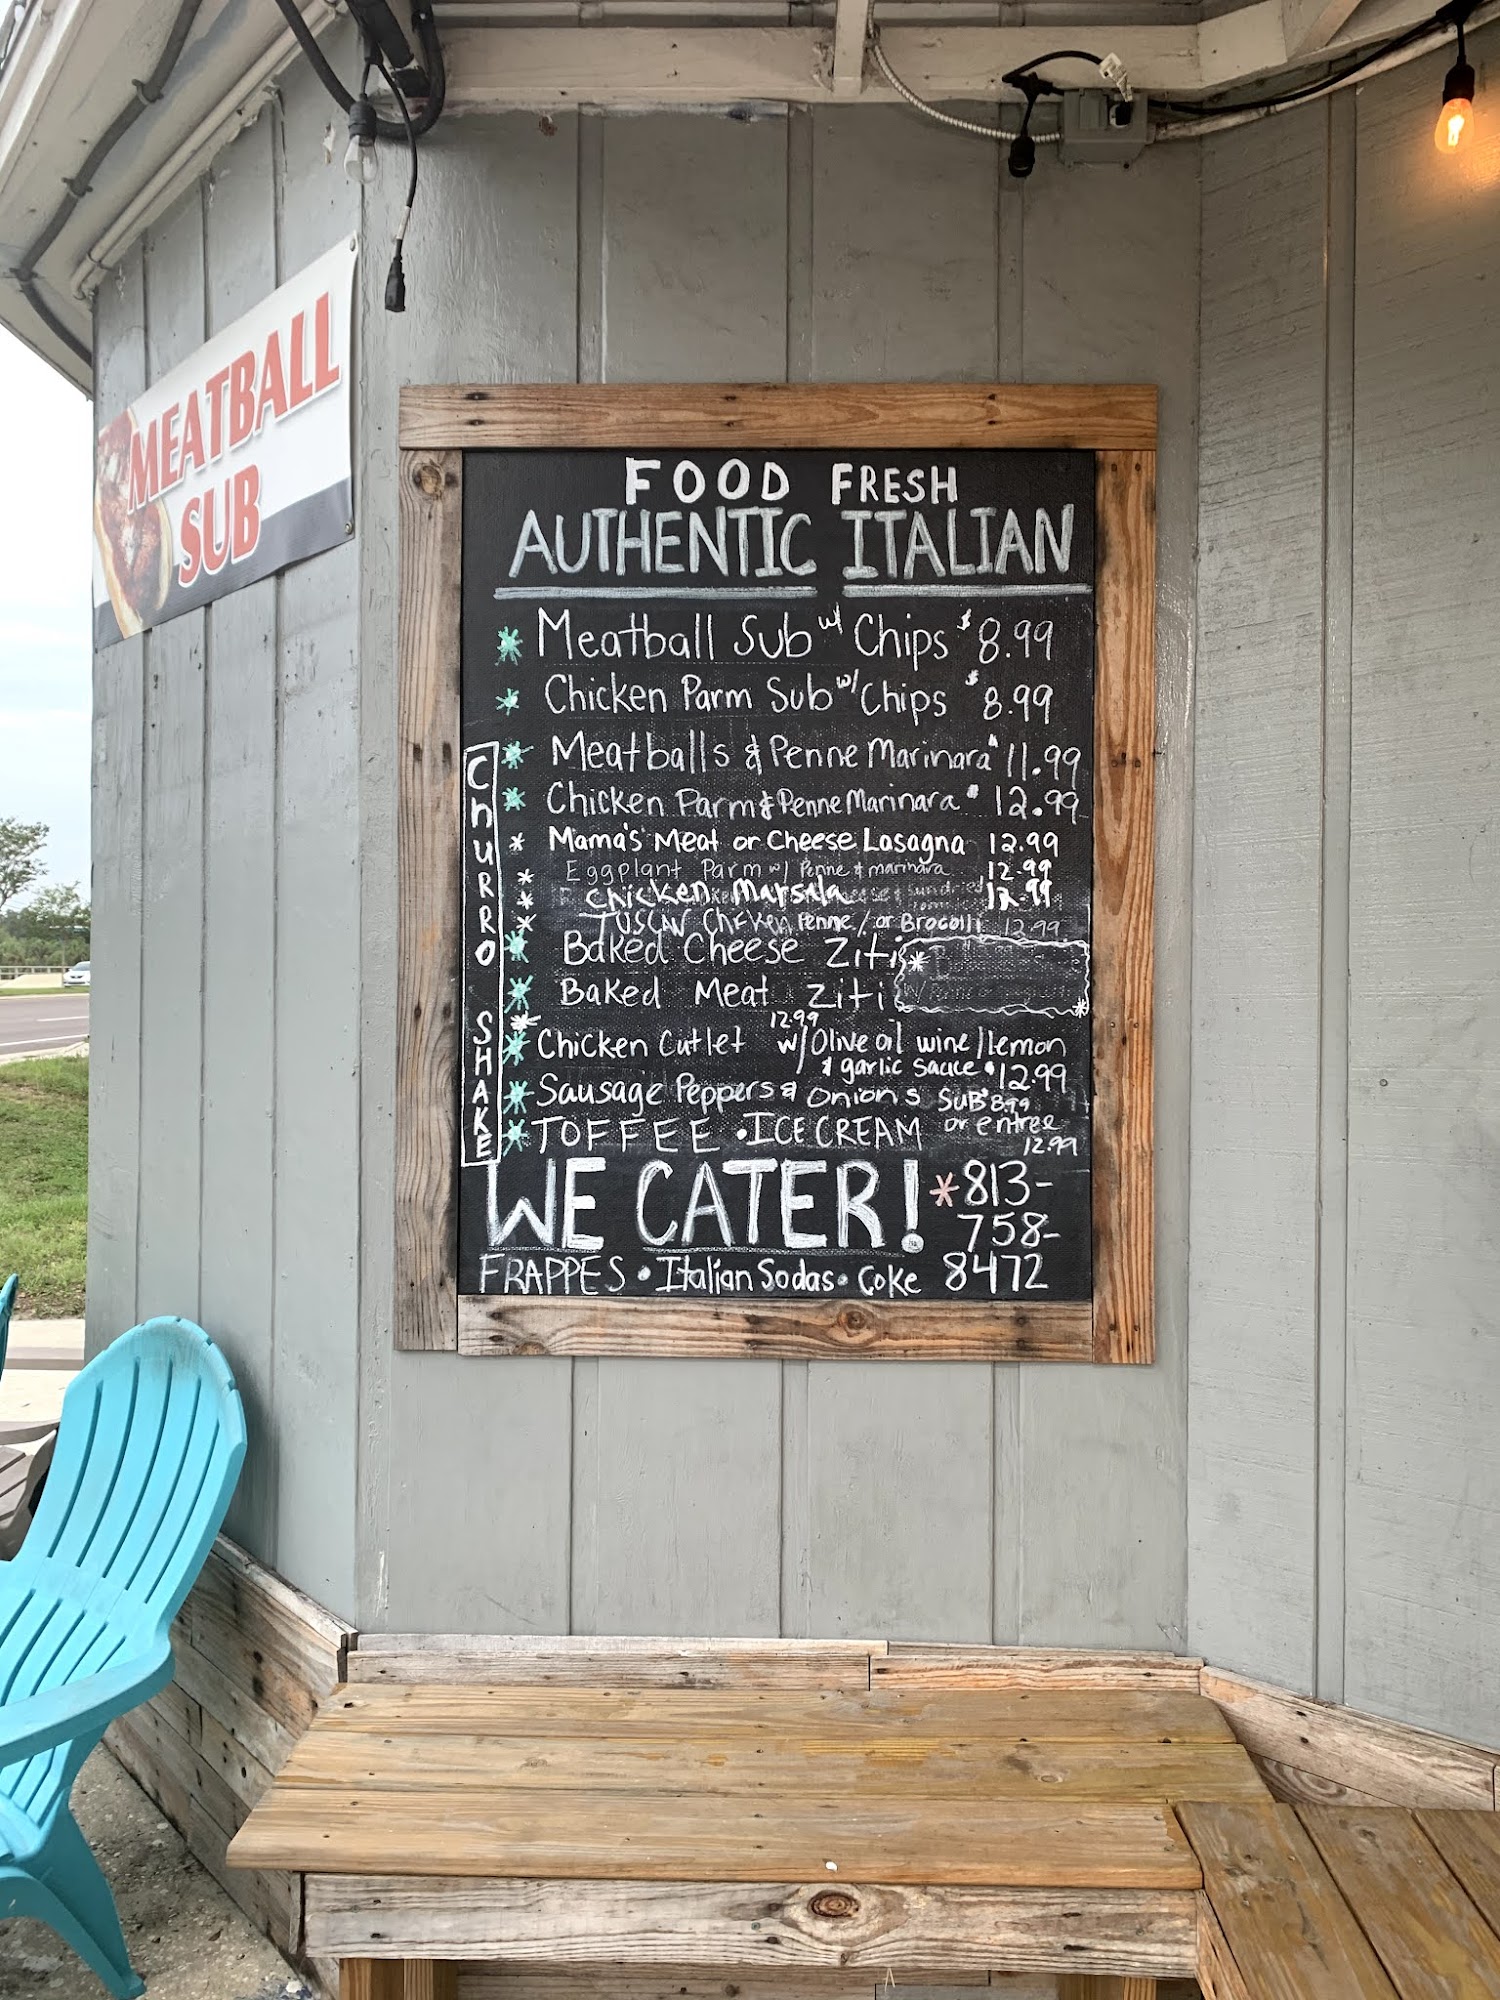 MEATBALL
SUB
FOOD FRESH
AUTHENTIC ITALIAN
Meatball Sub w/ Chips $8.99
Chicken Parm Sub w/ Chips $8.99
Meatballs & Penne Marinara $11.99
Chicken Parm & Penne Marinara $12.99
* Mama's Meat or Cheese Lasagna 12.99
* Eggplant Parm w/ Penne & marinara 12.99
* Chicken Marsala 12.99
* TUSCAN Chicken Penne / or Brocolli 12.99
Baked Cheese Ziti
Baked Meat Ziti
12.99
Chicken Cutlet w/ Olive oil wine/lemon
& garlic sauce $12.99
Sausage Peppers & Onions SUB $8.99
or entree
12.99
TOFFEE • ICE CREAM
CHURRO SHAKE
WE CATER! *813-
758-
8472
FRAPPES • Italian Sodas • Coke